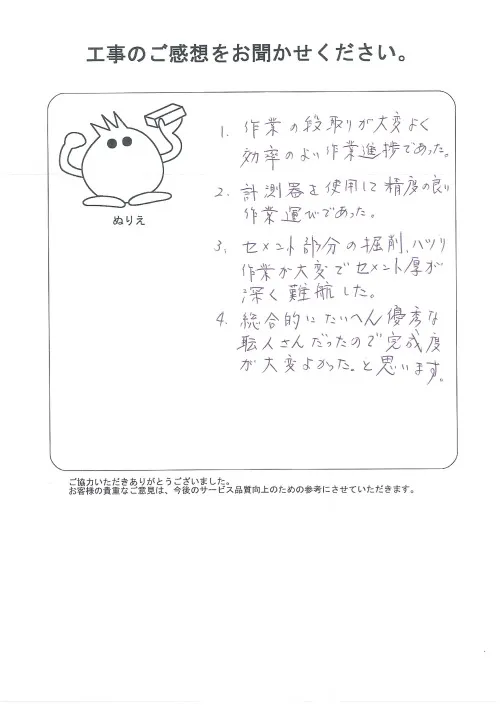 工事のご感想をお聞かせください。
1. 作業の段取りが大変よく
効率のよい作業進捗であった。
2. 計測器を使用して精度の良い
作業運びであった。
3. セメント部分の掘削、ハツリ
作業が大変でセメント厚が
深く難航した。
4. 総合的にたいへん優秀な
職人さんだったので完成度
が大変よかった。と思います。
ぬりえ
ご協力いただきありがとうございました。
お客様の貴重なご意見は、今後のサービス品質向上のための参考にさせていただきます。